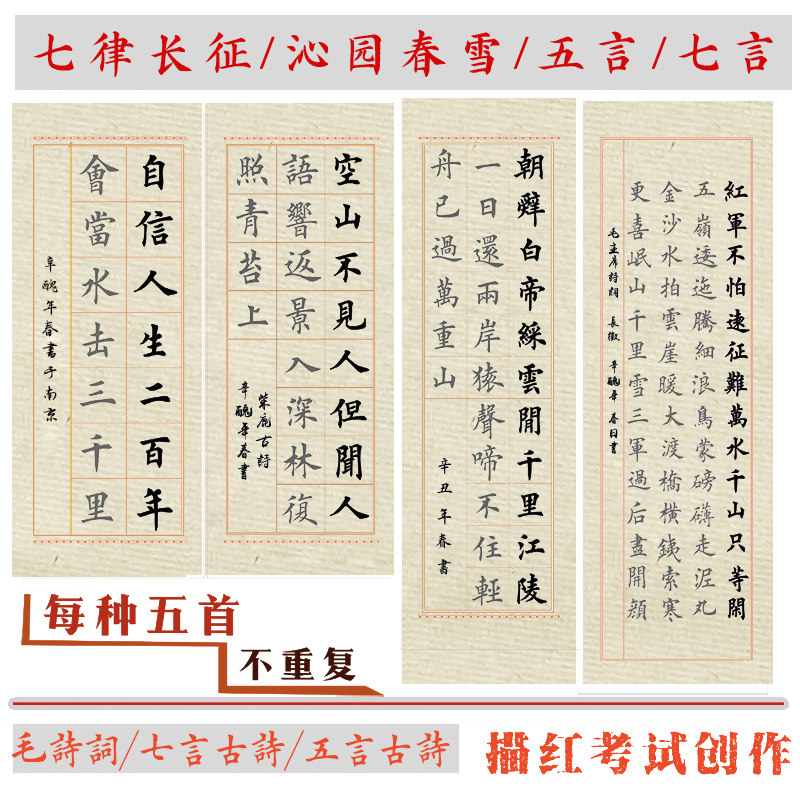 七律长征/沁园春雪/五言/七言
自信人生二百年
會當水击三千里
辛醜年春書于南京
空山不見人但聞人
語響返景入深林復
照青苔上
柴鹿古詩
辛醜年春書
朝辤白帝綵雲閒千里江陵
一日還兩岸猿聲啼不住輕
舟已過萬重山
辛丑年春書
紅軍不怕遠征難萬水千山只等閑
五嶺逶迤騰細浪烏蒙磅礴走泥丸
金沙水拍雲崖暖大渡橋橫鐵索寒
更喜岷山千里雪三軍過后盡開顏
毛主席詩詞 長徵 辛醜年 春日書
每种五首
不重复
毛詩詞/七言古詩/五言古詩
描红考试创作